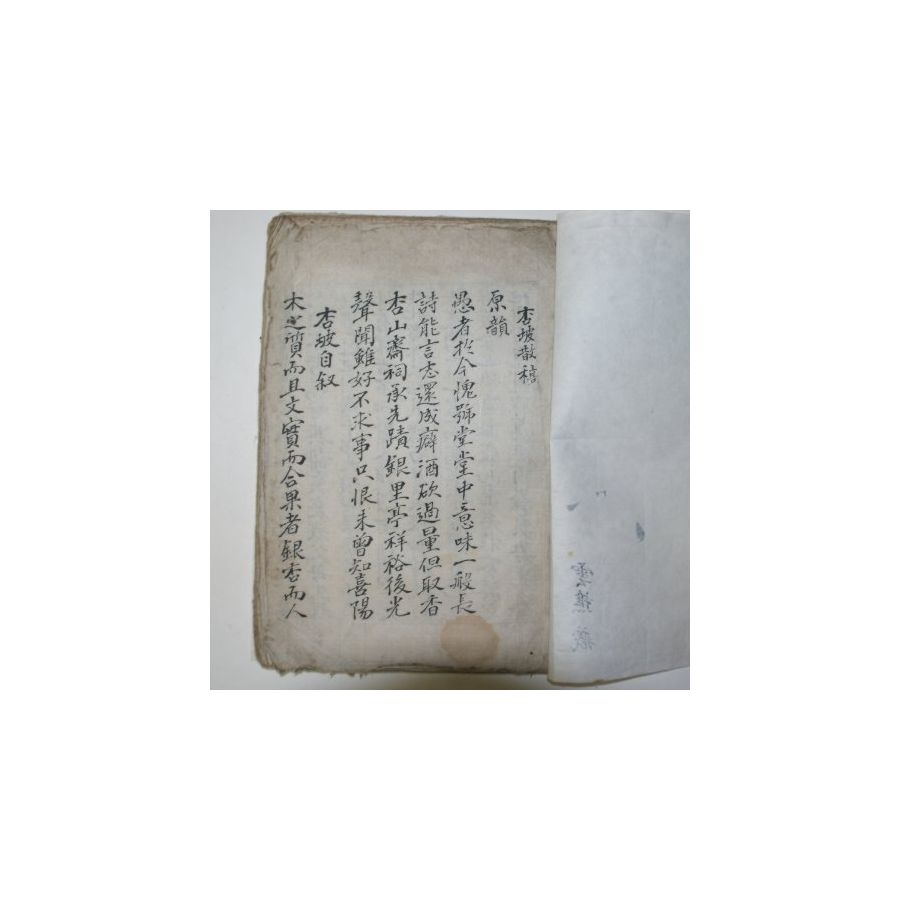 杏坡散稿
原韻
愚者於今愧號堂堂中意味一般長
詩能言志還成癖酒砍過量但取香
杏山齋祠承先蹟銀里亭祥裕後光
聲聞雖好不求事只恨未曾知喜陽
杏坡自叙
木之質而且文實而合果者銀杏而人